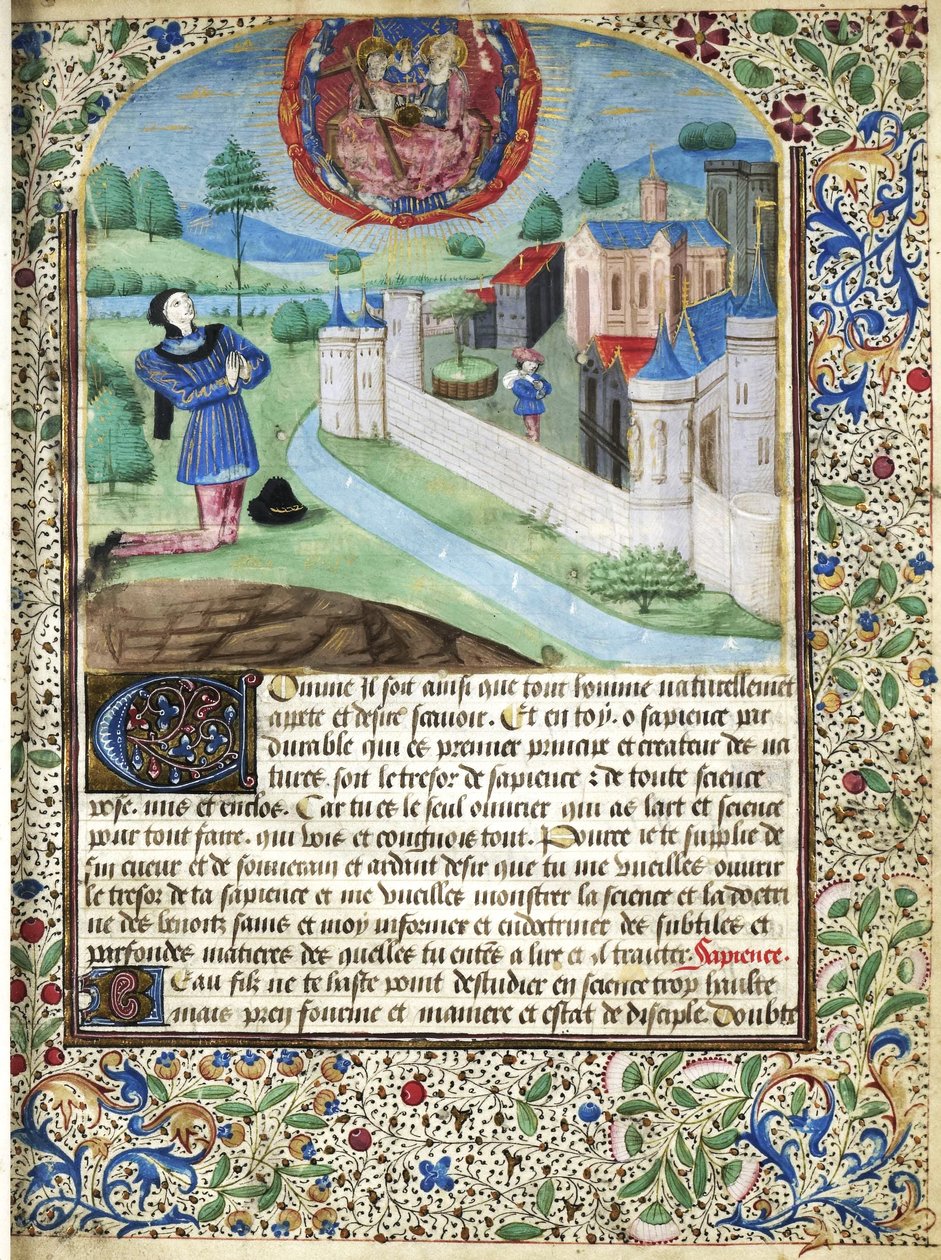 Comme il soit ainsi que tout homme naturellemet
apete et desire scauoir. Et en toy. o sapience par
durable qui es premier principe et createur des na
tures. soit le tresor de sapience : de toute science
pose. mis et enclos. Car tu es le seul ouurier qui as lart et science
pour tout faire. qui vois et congnois tout. Pource ie te supplie de
fin cueur et de souuerain et ardant desir que tu me vueilles ouurir
le tresor de ta sapience et me vueilles monstrer la science et la doctri
ne des benoitz sains et moy informer et endoctriner des subtiles et
parfondes matieres des quelles tu entes a lire et traicter. Sapience.
Beau filz ne te haste point destudier en science trop haulte
mais pren fourme et maniere et estat de disciple. Doubte